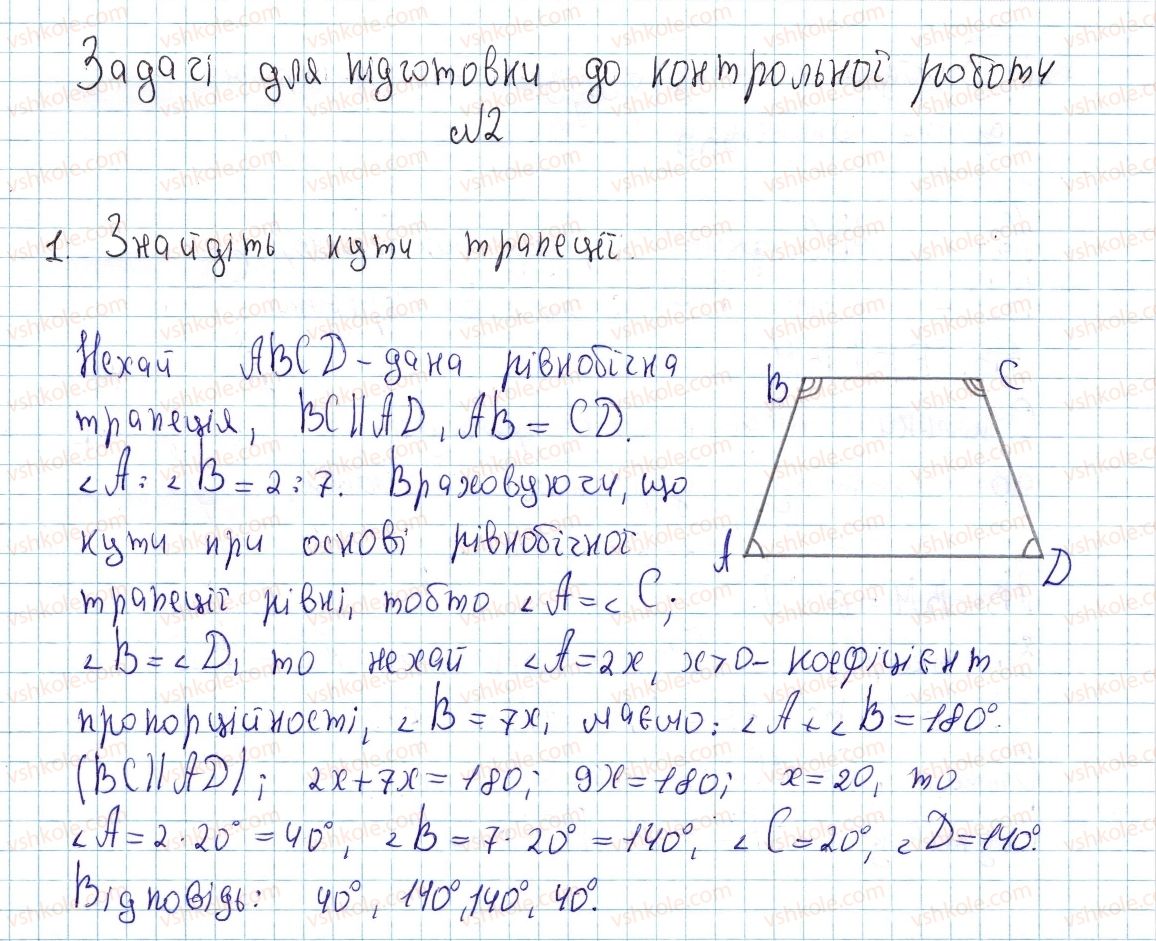 Задачі для підготовки до контрольної роботи
№2
1. Знайдіть кути трапеції.
Нехай ABCD - дана рівнобічна
трапеція, BC||AD, AB = CD.
∠A : ∠B = 2 : 7. Враховуючи, що
кути при основі рівнобічної
трапеції рівні, тобто ∠A = ∠C;
∠B = ∠D, то нехай ∠A = 2x, x > 0 - коефіцієнт
пропорційності, ∠B = 7x, маємо: ∠A + ∠B = 180°.
(BC||AD); 2x + 7x = 180; 9x = 180; x = 20, то
∠A = 2 · 20° = 40°, ∠B = 7 · 20° = 140°, ∠C = 20°, ∠D = 140°.
Відповідь: 40°, 140°, 140°, 40°.
B
C
A
D